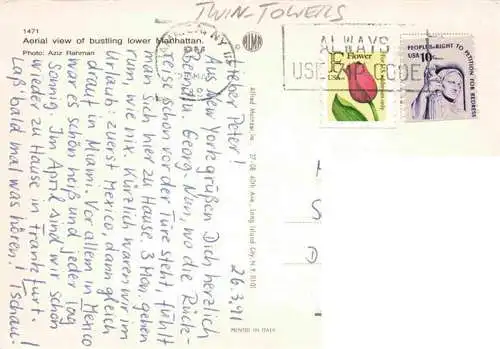 TWIN-TOWERS
1471
Aerial view of bustling lower Manhattan.
Photo: Aziz Rahman
ALWAYS
USE ZIP CODE
Flower
USA
For U.S. addresses only
PEOPLE'S RIGHT TO PETITION FOR REDRESS
USA 10c
26.3.91
Lieber Peter!
Aus New York grüßen Dich herzlich
Georg. Nun, wo die Rück-
reise schon vor der Türe steht, fühlt
man sich hier zu Hause. 3 Mon. gehen
rum wie nix. Kürzlich waren wir im
Urlaub: zuerst Mexico, dann gleich
drauf in Miami. Vor allem in Mexico
war es schön heiß und jeder Tag
Sonnig. Im April sind wir schon
wieder zu Hause in Frankfurt.
Laß' bald mal was hören! Tschau!
Long Island City N.Y. 11101
PRINTED IN ITALY